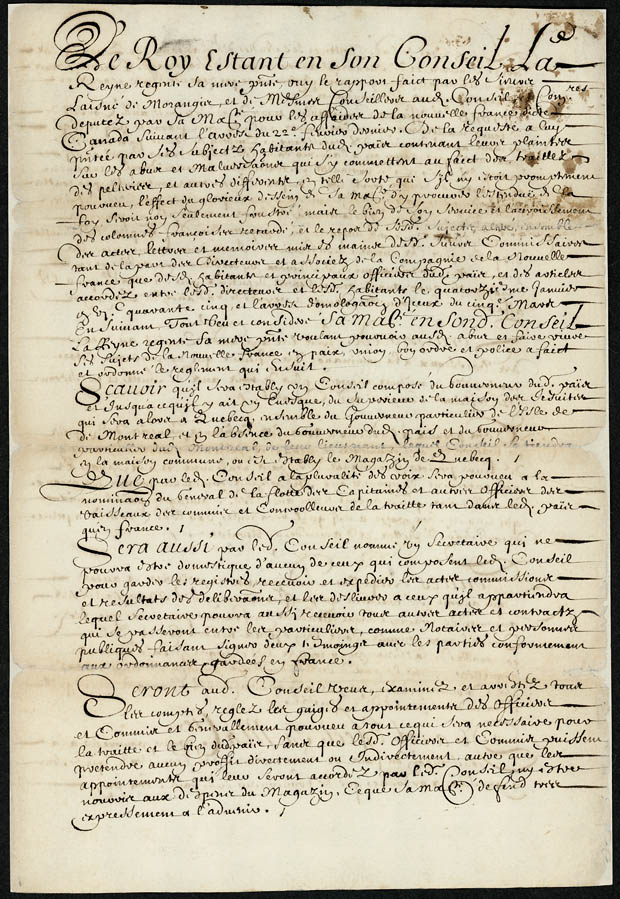 Le Roy Estant en son Conseil La
Reyne regente sa mere pnte, ouy le rapport faict par les Sieurs
Laisné de Morangis, et de Mesmes Conseillers aud. Conseil et Com.res
deputez par sa Ma.té pour les affaires de la nouvelle france dicte
Canada suivant l'arrest du 22.e fevrier dernier. De la requeste a luy
pntée par ses subjects habitants dud. pais contenant leurs plaintes
sur les abus et Malversaons qui s'y commettent au faict des traittes
des pelteries, et autres differents, en telle sorte que s'il n'y estoit promptement
pourveu, l'effect du glorieux dessein de sa Ma.té d'y procurer l'estendue de la
foy seroit non seulement frustré, mais le bien de son service et l'accroissement
des colonnes francoises retardé, et le repos de sesd. subjects altéré, ensemble
des actes, lettres et memoires mis es mains desd. sieurs Commissaires
tant de la part des Directeurs et associez de la Compagnie de la Nouvelle
france que desd. habitants et principaux officiers dud. pais, et des articles
accordez entre lesd. directeurs et lesd. habitants le quatorziesme Janvier
g vj.c quarante cinq et larrest d'homologaon d'Iceux du cinq.e Mars
En suivant. Tout Veu et consideré. Sa Ma.té en sond. Conseil
La Reyne regente sa mere pnte voulant pourvoir ausd. abus et faire vivre
ses sujets de la Nouvelle France en paix, union, bon ordre et police a faict
et ordonné le reglement qui ensuit.
Scavoir qu'il sera estably un Conseil composé du Gouverneur dud. pais
et Jusqu'a ce qu'il y ait un Evesque, du superieur de la maison des Jesuites
qui sera alors a Quebecq, ensemble du Gouverneur particulier de l'Isle de
de Montreal, et en l'absence du Gouverneur dud. pais et du Gouverneur
particulier dud. Montreal, de leurs lieutenans, lequel Conseil se tiendra
en la maison commune, ou est estably le Magazin de Quebecq.
Que par led. Conseil a la pluralité des voix sera pourveu a la
nominaon du General de la flotte des Capitaines et autres Officiers des
Vaisseaux des commis et Controolleurs de la traitte tant dans led. pais
qu'en france.
Sera aussi par led. Conseil nommé un secretaire qui ne
pourra estre domestique d'aucun de ceux qui composent led. Conseil
pour garder les registres recevoir et expedier les actes commissions
et resultats des deliberaons, et les deslivrer a ceux qu'il appartiendra
lequel secretaire pourra aussi recevoir tous autres actes et contractz
qui se passeront entre les particuliers, comme Notaires et personnes
publiques faisant signer deux tesmoings avec les parties conformement
aux ordonnances gardées en france.
Seront aud. Conseil veus, examinez et arrestez tous
les comptes, reglez les gaiges et appointements des officiers
et Commis et Generallement pourveu a tout ce qui sera necessaire pour
la traitte et le bien dud. pais, sans que lesd. Officiers et Commis puissent
pretendre aucun proffit directement ou Indirectement, autre que les
appointements qui leur seront accordez par led. Conseil ny estre
nourris aux despens du Magazin, Ce que sa Ma.té defend tres
expressement a l'advenir.